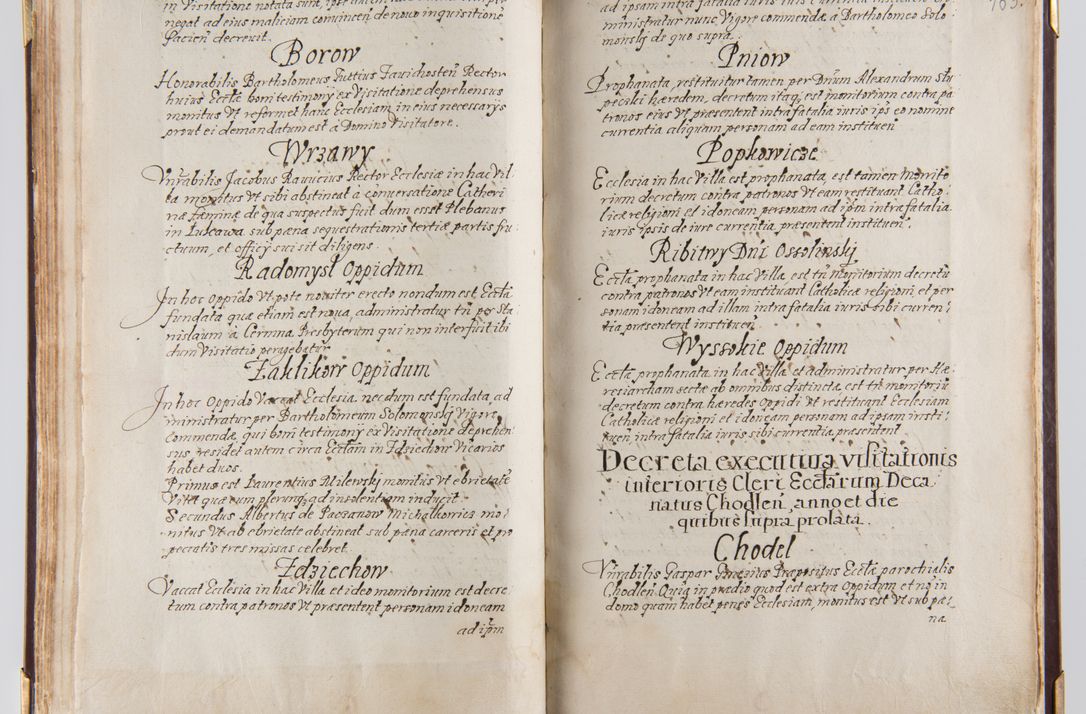 in Visitatione notata sunt,
negat ad eius maliciam convincen̄ de novo inquisitionē
facien̄ decrevit.
Borow
Honorabilis Bartholomeus Juttius Zavichosten̄ Rector
huius Ecclæ boni testimonÿ ex Visitatione deprehensus
monitus Vt reformet hanc Ecclesiam in eius necessarÿs
prout ei demandatum est à Domino Visitatore.
Wrzawy
Vnrabilis Jacobus Ravucius Rector Ecclesiæ in hac Vil
la monitus Vt sibi abstineat à conversatione Catheri
næ fæminæ de qua suspectus fuit dum esset Plebanus
in Lukawa sub pæna sequestrationis tertiæ partis fru
ctuum, et officÿ sui sit diligens.
Radomysl Oppidum
In hoc Oppido Vt pote noviter erecto nondum est Eccla
fundata quæ etiam est nova, administratur tn̄ per Sta
nislaum à Cernna Presbyterum qui non interfuit ibi
dum Visitatio peragebatur
Zaklikow Oppidum
In hoc Oppido Vacat Ecclesia necdum est fundata, ad
ministratur per Bartholomeum Solomonskj Vigore
Commendæ, qui boni testimonÿ ex Visitatione deprehen
sus residet autem circa Ecclam in Zdziechow Vicarios
habet duos.
Primus est Laurentius Milewskj monitus Vt ebrietatē
Vitet quæ eum plerunq; ad insolentiam inducit
Secundus Albertus de Paczanow Michalkowicz mo/
nitus Vt ab ebrietate abstineat sub pæna carceris et pro
peccatis tres missas celebret.
Zdziechow
Vaccat Ecclesia in hac Villa et ideo monitorium est decre
tum contra patronos Vt præsentent personam idoneam
ad ipm̄
ad ipsam intra fatalia iuris
ministratur nunc Vigore commendæ a Bartholomeo Solo
monskj de quo supra.
Pniow
Prophanata, restituitur tamen per Dnūm Alexandrum Slu
peczkj hæredem, decretum itaq; est monitorium contra pa
tronos eius Vt præsentent infra fatalia iuris ipso eo nomine
currentia aliquam personam ad eam instituen̄
Popkowicze
Ecclesia in hac Villa est prophanata, est tamen Monito
rium decretum contra patronos Vt eam restituant Catho,
licæ religioni et idoneam personam ad ipm̄ intra fatalia
iuris ipsis de iure currentia præsentent instituen̄.
Ribitwy Dnī Ossolinskj
Eccla prophanata in hac Villa est tn̄ monitorium decretū
contra patronos Vt eam instituant Catholicæ religioni, et per
sonam idoneam ad illam intra fatalia iuris sibi curren,
tia præsentent instituen̄
Wyssokie Oppidum
Eccla prophanata in hac Villa et administratur per Hæ
resiarcham sectæ ab omnibus distinctæ est tn̄ monitoriū
decretum contra hæredes Oppidi Vt restituant Ecclesiam
Catholicæ religioni et idoneam personam ad ipsam insti,
tuen̄ intra fatalia iuris sibi currentia præsentent
Decreta executiva visitationis
inferioris Cleri Ecclarum Deca
natus Chodlen̄ anno et die
quibus supra prolata.
Chodel
Vnrabilis Gaspar Præpositus Ecclæ parochialis
Chodlen̄ Quia in prædio quod est extra Oppidum et nō in
domo quam habet penes Ecclesiam, monitus est Vt sub pæ,
na